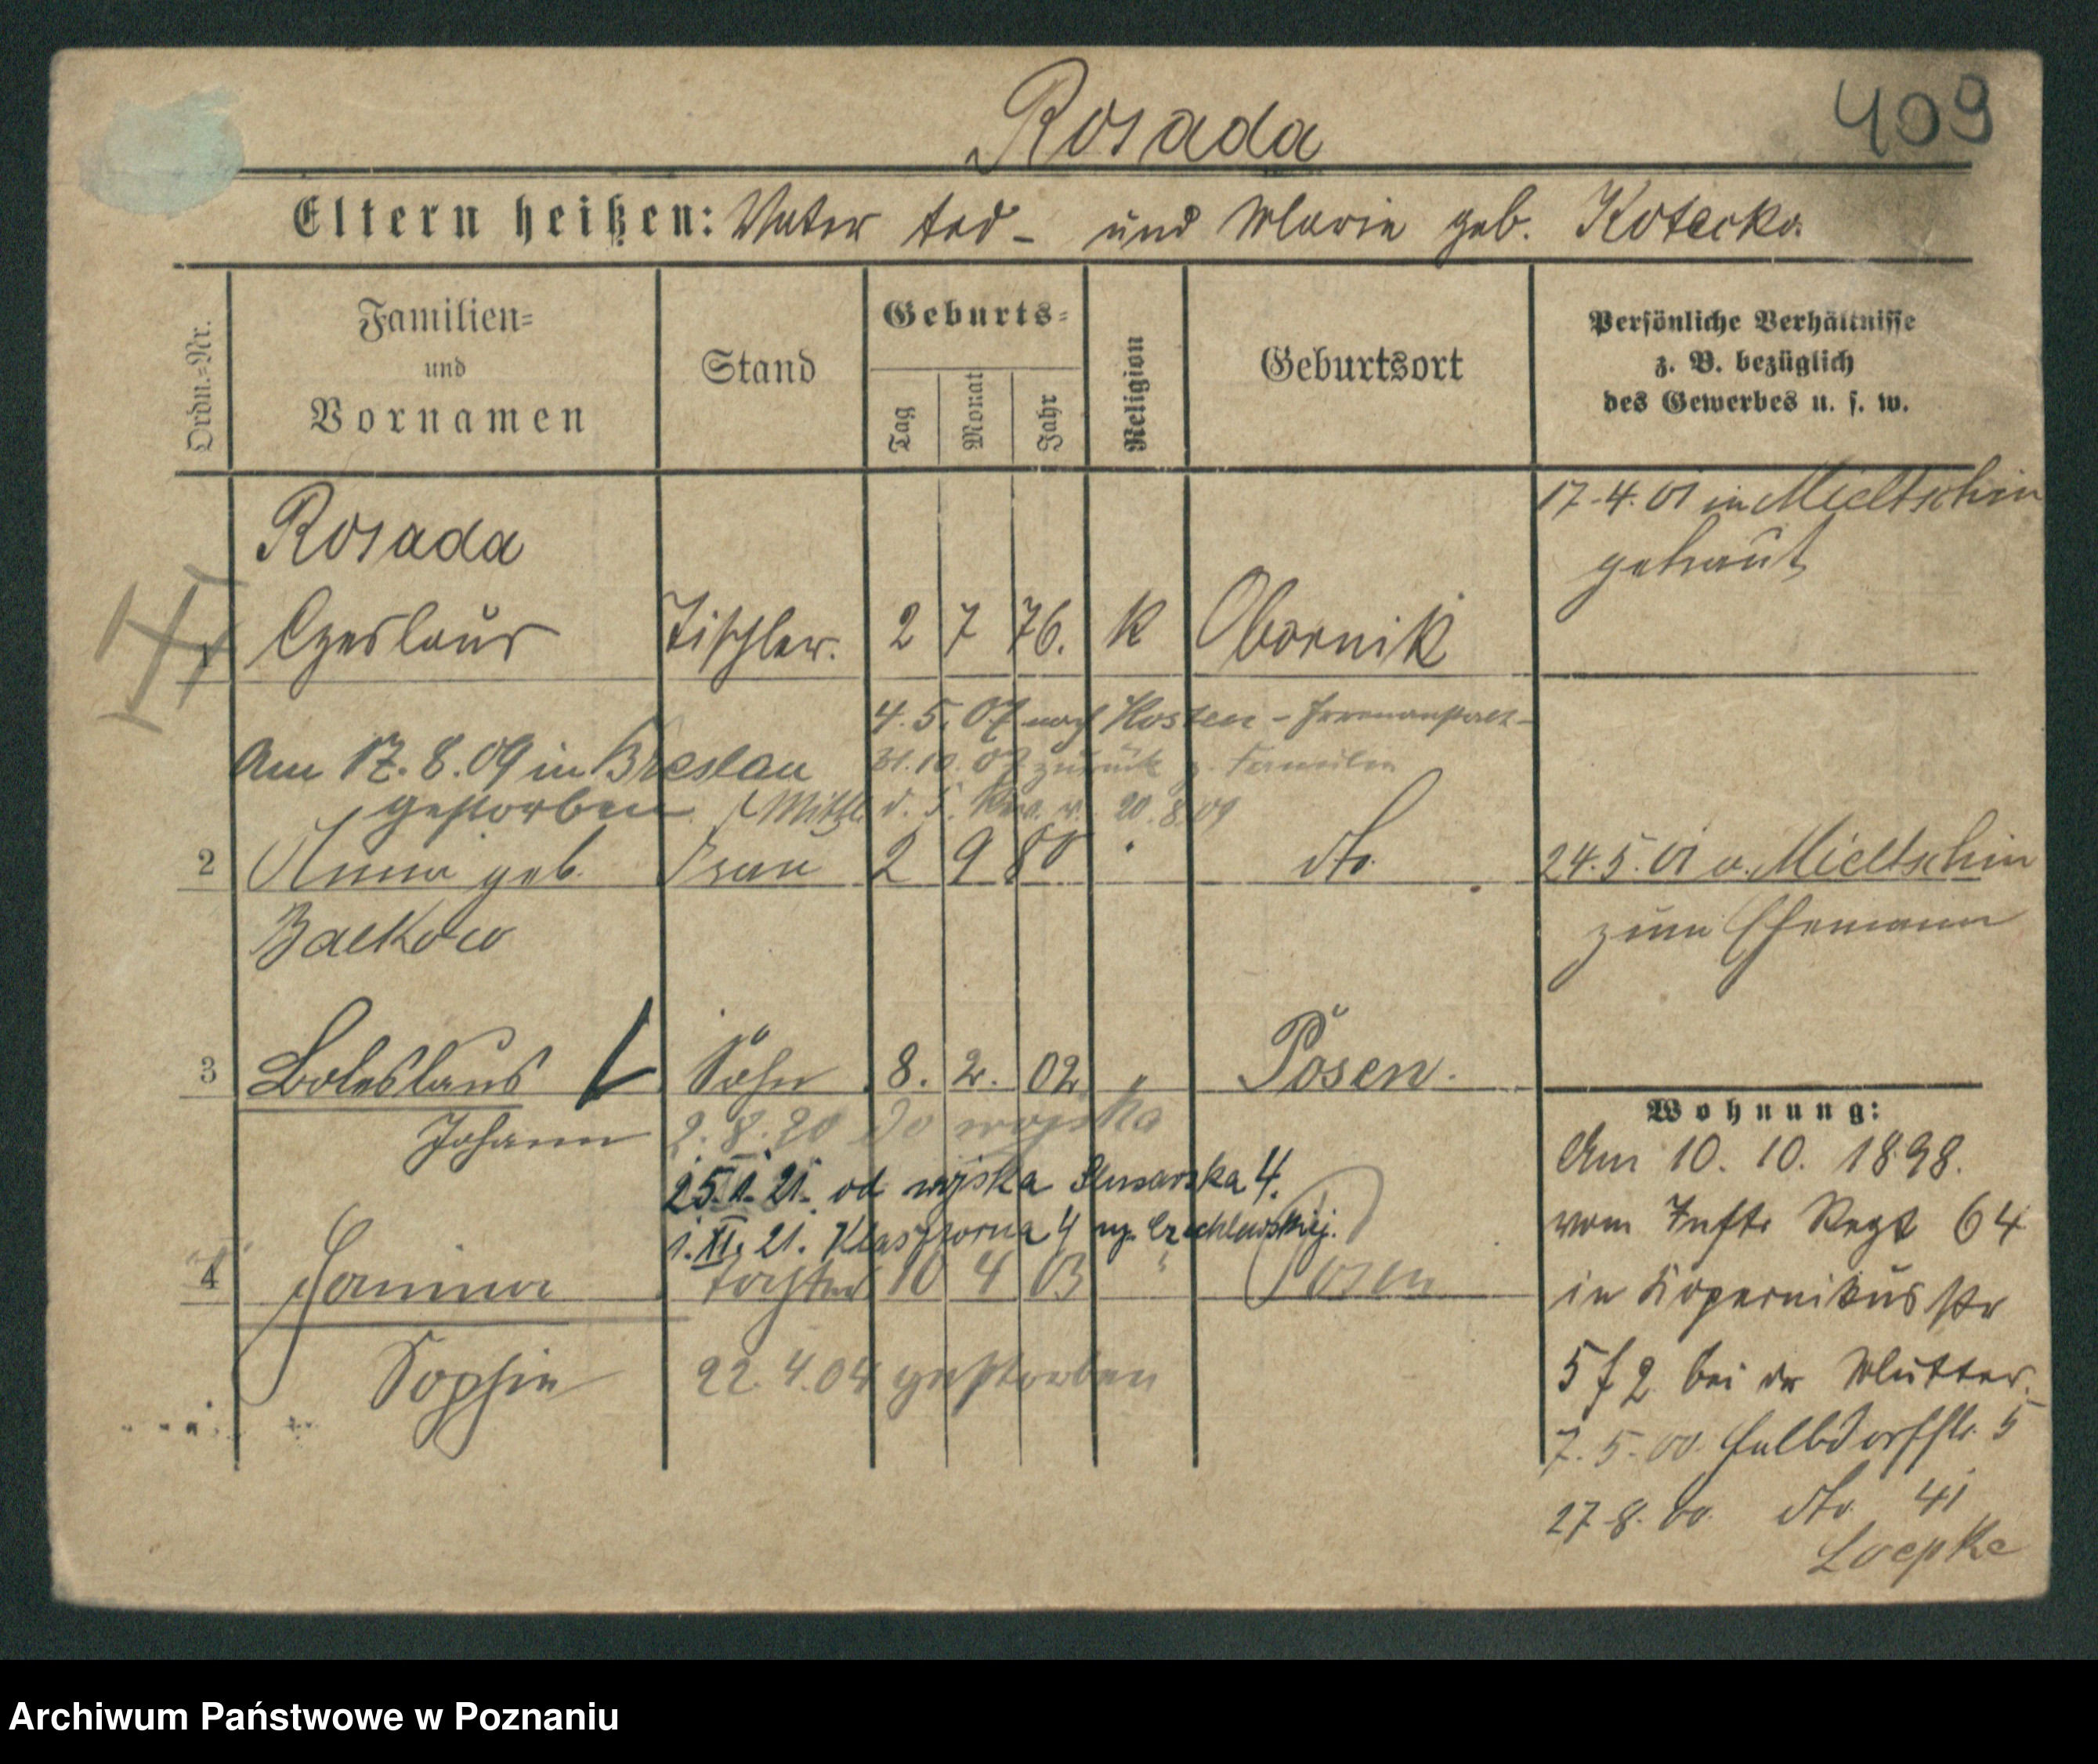 Rosada
409
Eltern heißen: Vater tod - und Marie geb. Kotecka.
Ordn.=Nr.
Familien=
und
Vornamen
Stand
Geburts=
Tag
Monat
Jahr
Religion
Geburtsort
Persönliche Verhältnisse
z. B. bezüglich
des Gewerbes u. s. w.
17.4.01 in Mieltschin
getraut
Rosada
1 Czeslaus Tischler. 2 7 76. K Obornik
4.5.07 nach Kosten - Irrenanstalt -
Am 17.8.09 in Breslau
31.10.07 zurück z. Familie
gestorben (Mittl. d. 20.8.09
2 Anna geb. Frau 2 9 80 " dto. 24.5.01 v. Mieltschin
zum Ehemann
Balkow
3 Boleslaus Sohn 8. 2. 02 " Posen.
Johann 2.8.20 do wojska
25.1.21. od wojska Slusarska 4.
1.XI.21. Klasztorna 4 Czechlewskiej.
4 Janina Tochter 10 4 03 " Posen
Sophie 22.4.04 gestorben
Wohnung:
Am 10. 10. 1898.
vom Inftr Regt 64
in Kopernikusstr
5 f 2 bei der Mutter.
7.5.00. Halbdorfstr. 5
27.8.00. dto. 41
Loepke
Archiwum Państwowe w Poznaniu